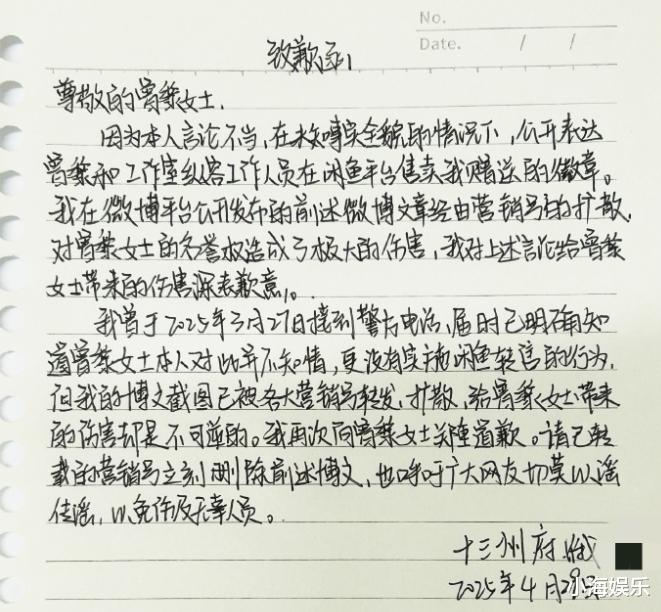 No.
Date. / /
致歉函
尊敬的曾黎女士.
因为本人言论不当，在未知晓完全貌的情况下，公开表达
曾黎和工作室纵容工作人员在闲鱼平台售卖我赠送的徽章。
我在微博平台公开发布的前述微博文章经由营销号的扩散，
对曾黎女士的名誉权造成了极大的伤害，我对上述言论给曾黎
女士带来的伤害深表歉意。
我曾于2025年3月27日接到警方电话，届时已明确知
道曾黎女士本人对此并不知情，更没有实施闲鱼转售的行为，
但我的博文截图已被各大营销号转发、扩散，给曾黎女士带来
的伤害却是不可逆的。我再次向曾黎女士郑重道歉。请已转
载的营销号立刻删除前述博文，也呼吁广大网友切莫以谣
传谣，以免伤及无辜人员。
十三州府
2025年4月29日
小海娱乐